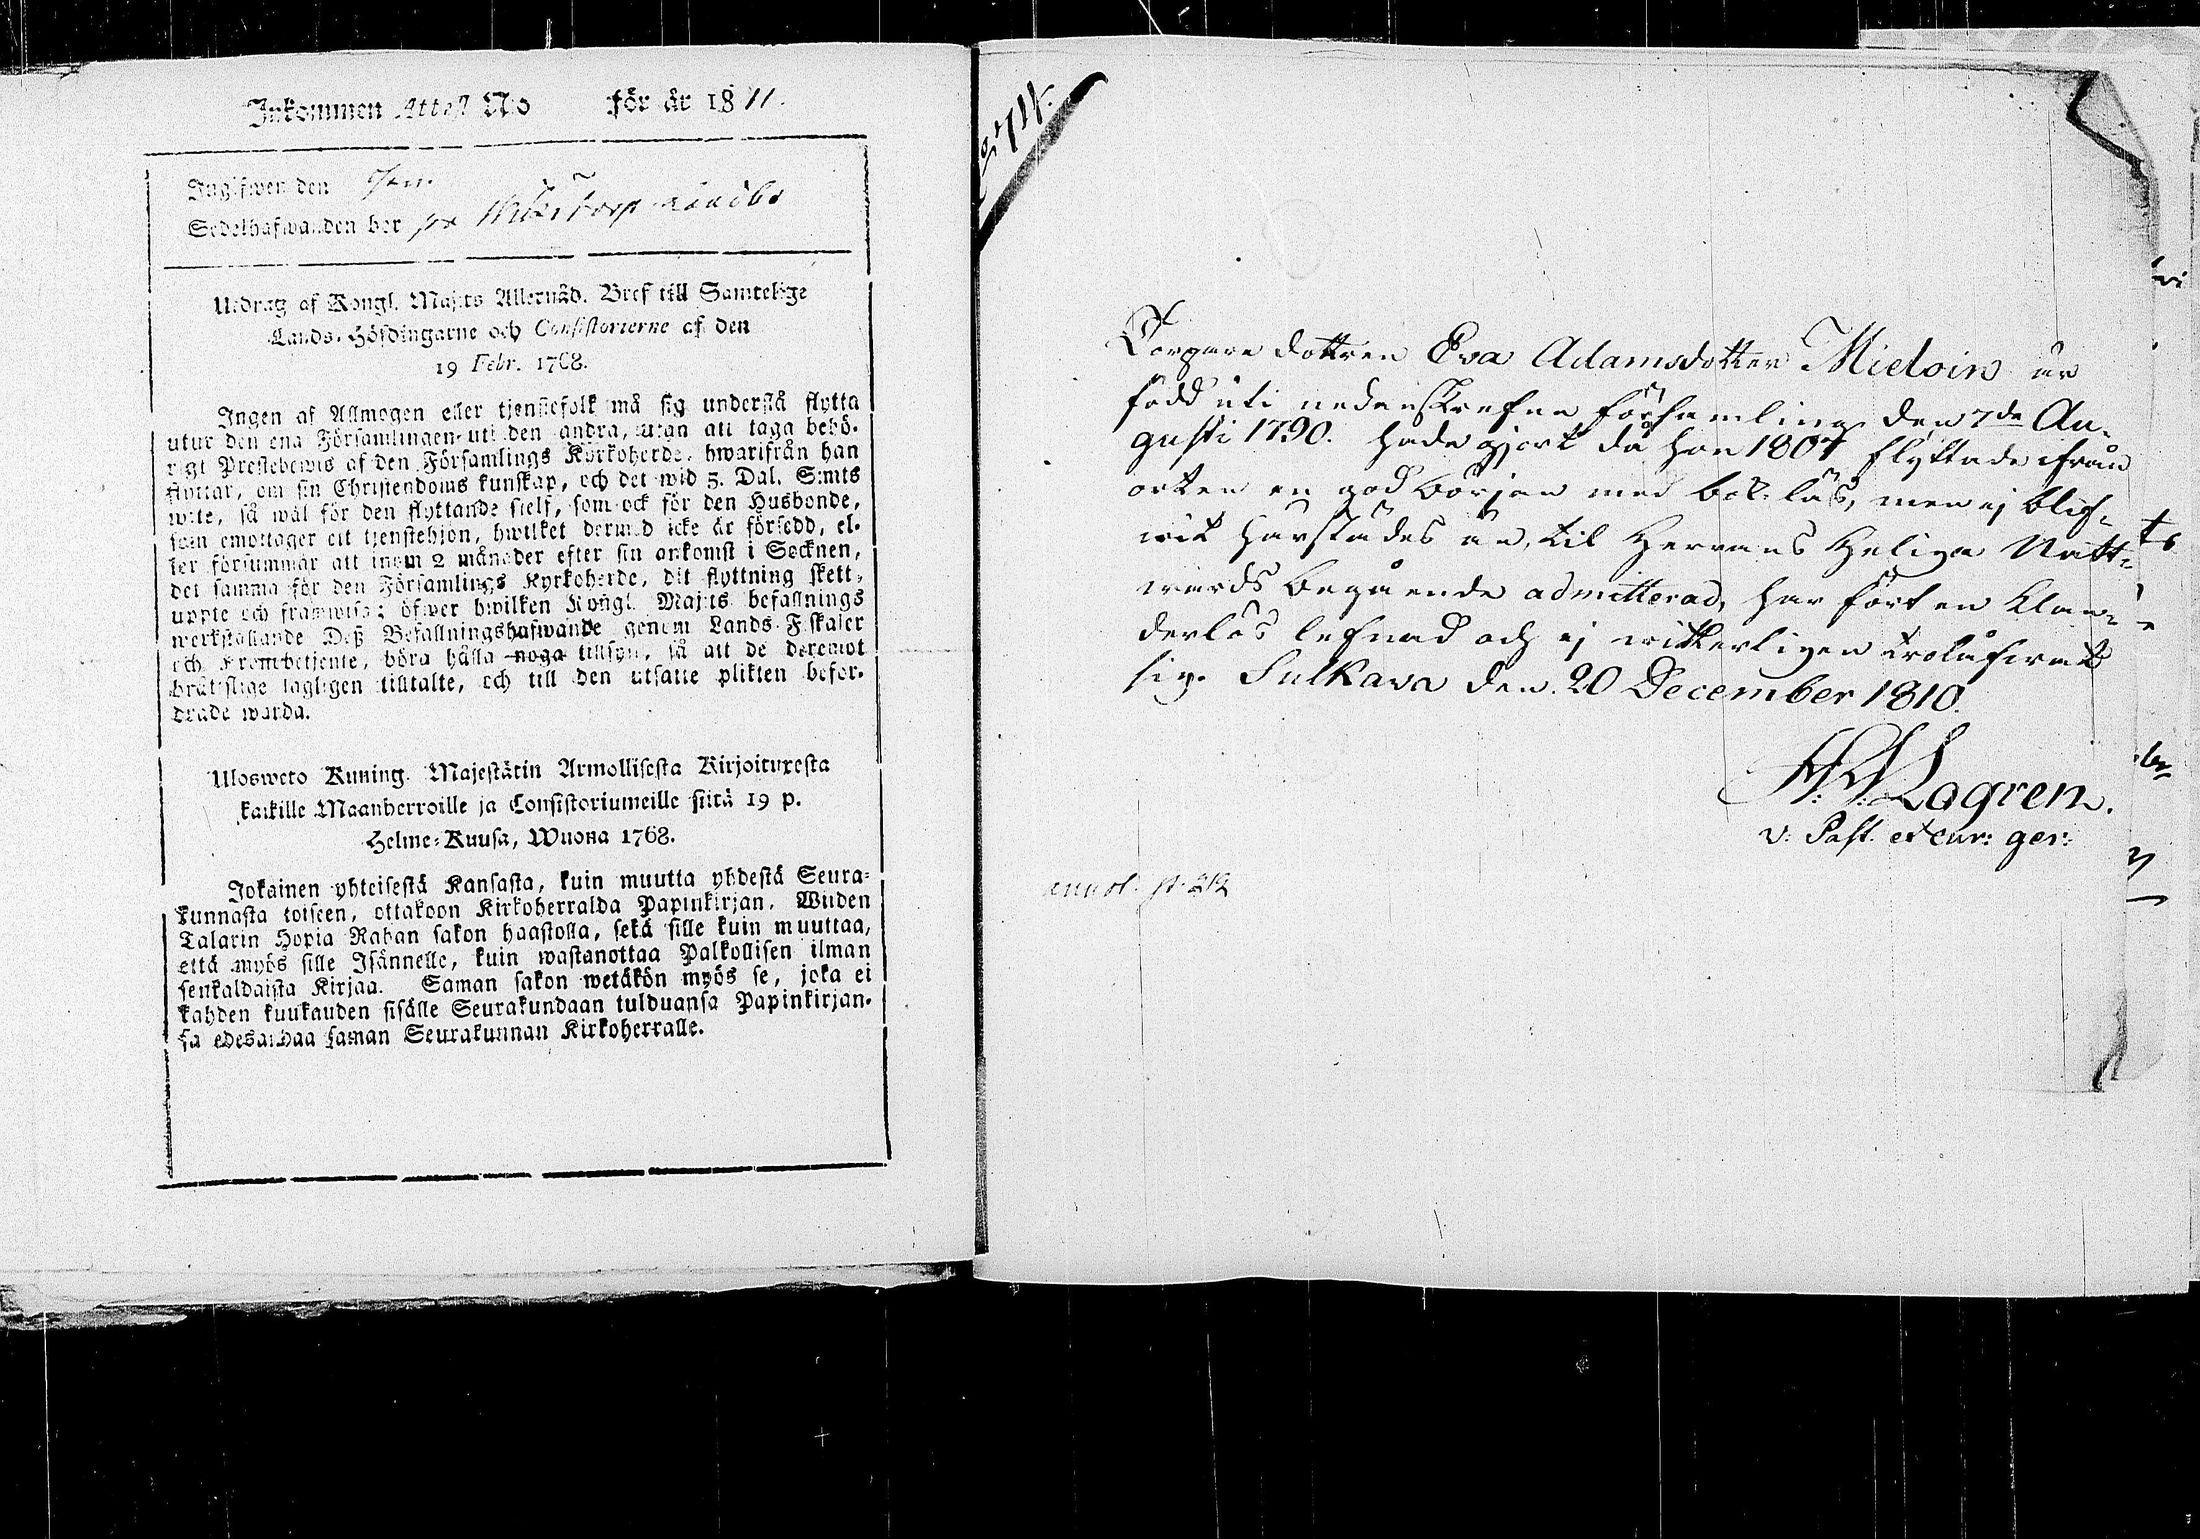 Inkommen Attest N:o för år 1811.
Ingifwen den
Sedelhafwanden bor på
Utdrag af Kongl. Maj:ts Allernåd. Bref till Samtelige
Lands-Höfdingarne och Consistorierne af den
19 Febr. 1768.
Ingen af Allmogen eller tjenstefolk må sig understå flytta
utur den ena Församlingen uti den andra, utan att taga behö-
rigt Prestebewis af den Församlings Kyrkoherde, hwarifrån han
flyttar, om sin Christendoms kunskap, och det wid 5. Dal. S:mts
wite, så wäl för den flyttande sielf, som ock för den Husbonde,
som emottager ett tjenstehjon, hwilket dermed icke är försedd, el-
ler försummar att inom 2 månader efter sin ankomst i Socknen,
det samma för den Församlings Kyrkoherde, dit flyttning skett,
uppte och framwisa; öfwer hwilken Kongl. Maj:ts befallnings
werkställande Deß Befallningshafwande genom Lands-Fiskaler
och Kronobetjente, böra hålla noga tillsyn, så att de deremot
bråttslige lagligen tilltalte, och till den utsatte plikten befor-
drade warda.
Ulosweto Kuning. Majestätin Armollisesta Kirjoituxesta
kaikille Maanherroille ja Consistoriumeille siitä 19 p.
Helme-Kuusa, Wuonna 1768.
Jokainen yhteisestä Kansasta, kuin muutta yhdestä Seura-
kunnasta toiseen, ottakoon Kirkoherralda Papinkirjan, Wiiden
Talarin Hopia Rahan sakon haastolla, sekä sille kuin muuttaa,
että myös sille Isännelle, kuin wastanottaa Palkollisen ilman
senkaldaista Kirjaa. Saman sakon wetäkön myös se, joka ei
kahden kuukauden sisälle Seurakundaan tulduansa Papinkirjan-
sa edesandaa saman Seurakunnan Kirkoherralle.
Torpare dottren Eva Adamsdotter Mieloin är
född uti nedanskrefne församling den 7de Au-
gusti 1790. hade gjort då hon 1807 flyttade ifrån
orten en god början med bok läs, men ej blif-
wit härstädes än, til Herrans Heliga Natt-
wards begående admitterad, har fört en klan-
derlös lefnad och ej witterligen trolåfwat
sig. Sulkava den 20 December 1810.
Lagren.
v: Past. et cur: ger:
annot. p. 212